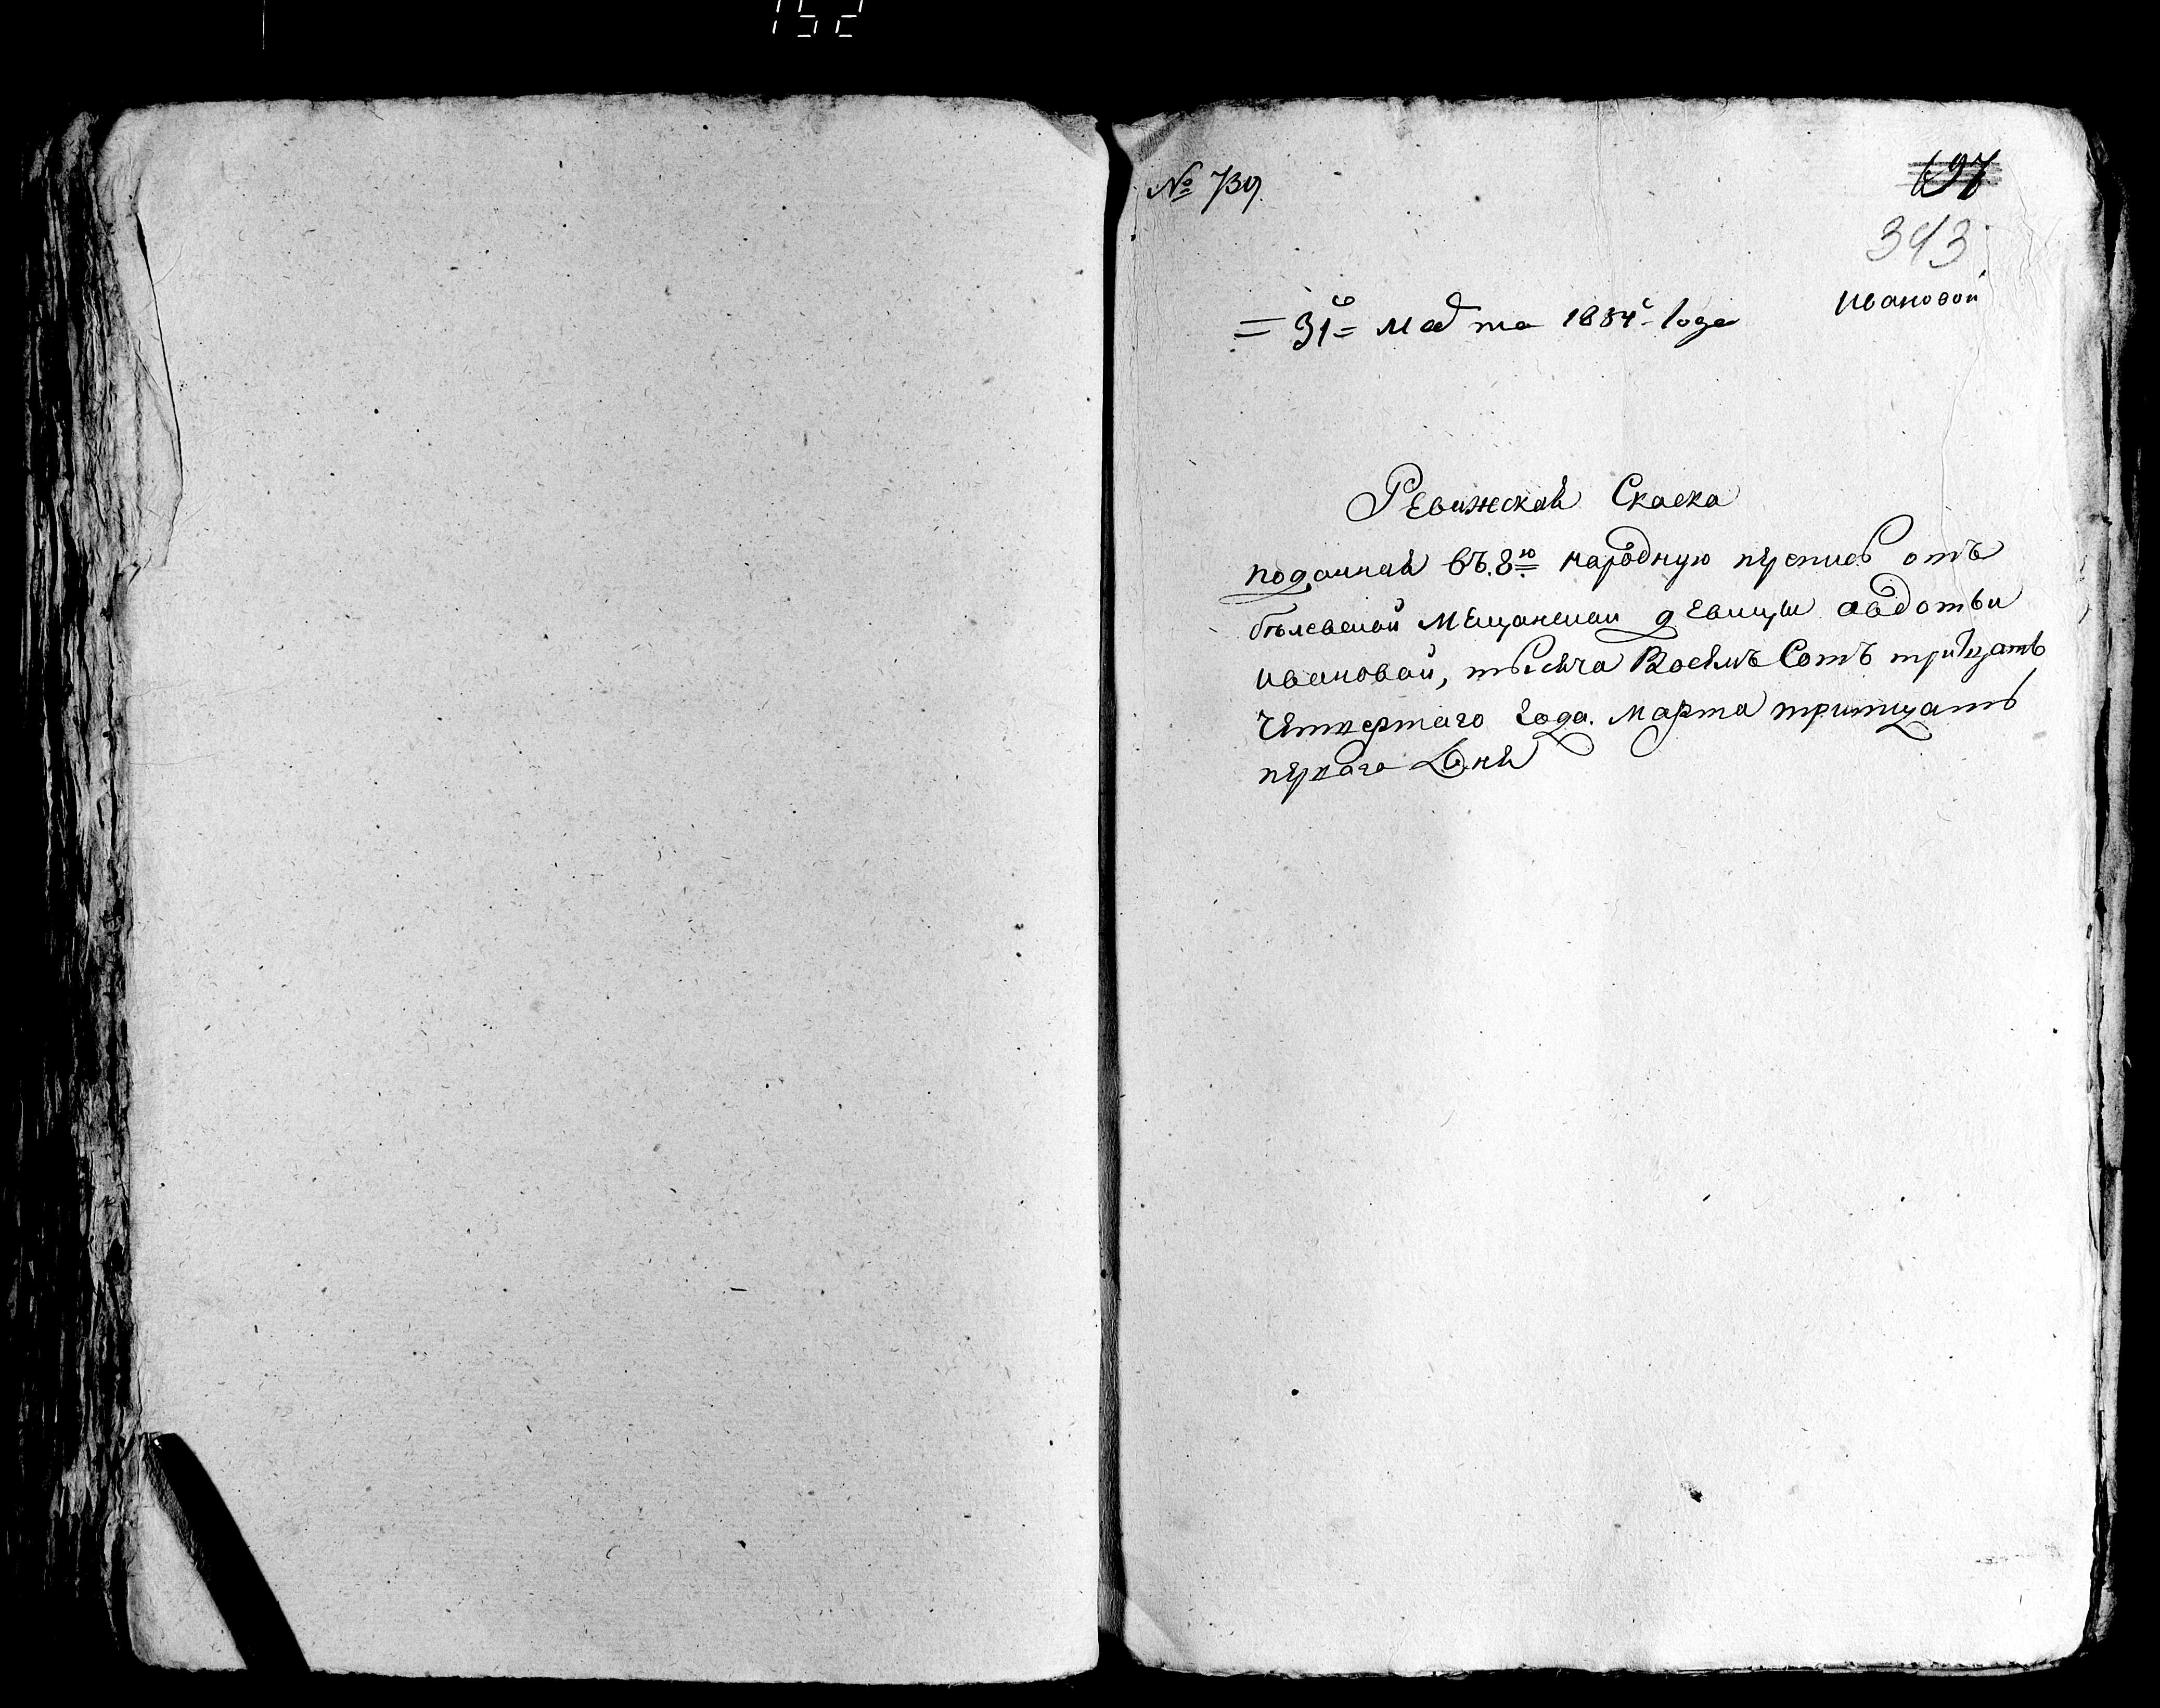 152
№ 739.
197
343
Ивановой
= 31го = Марта 1834г Года
Ревижская Скаска
поданная въ 8ю народную перепись отъ
бѣлевской Мещанской девицы авдотьи
ивановой, тысяча Восемь Сотъ тритцать
Четвертаго года. Марта тритцать
перваго Дня